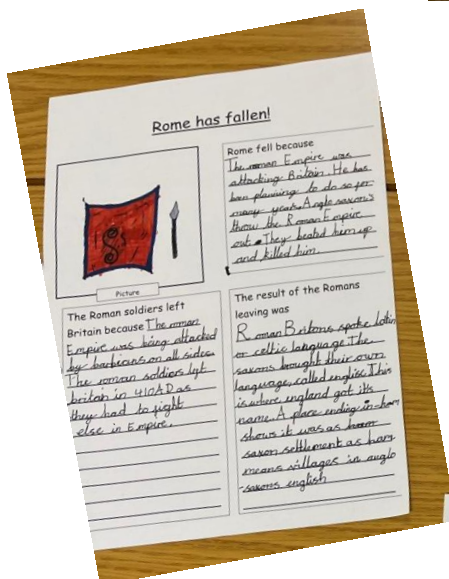 Rome has fallen!
Rome fell because
The roman Empire was
attacking Britain. He has
been planning to do so for
many years. Anglo saxons
throw the Roman Empire
out. They beated him up
and killed him.
Picture
The Roman soldiers left
Britain because The roman
Empire was being attacked
by barbarians on all sides.
The roman soldiers left
britain in 410AD as
they had to fight
else in Empire.
The result of the Romans
leaving was
Roman Britons spoke latin
or celtic language The
saxons brought their own
language, called englise. This
is where england got it's
name. A place ending in-ham
shows it was as
saxon settlement as ham
means villages in anglo
-saxons english